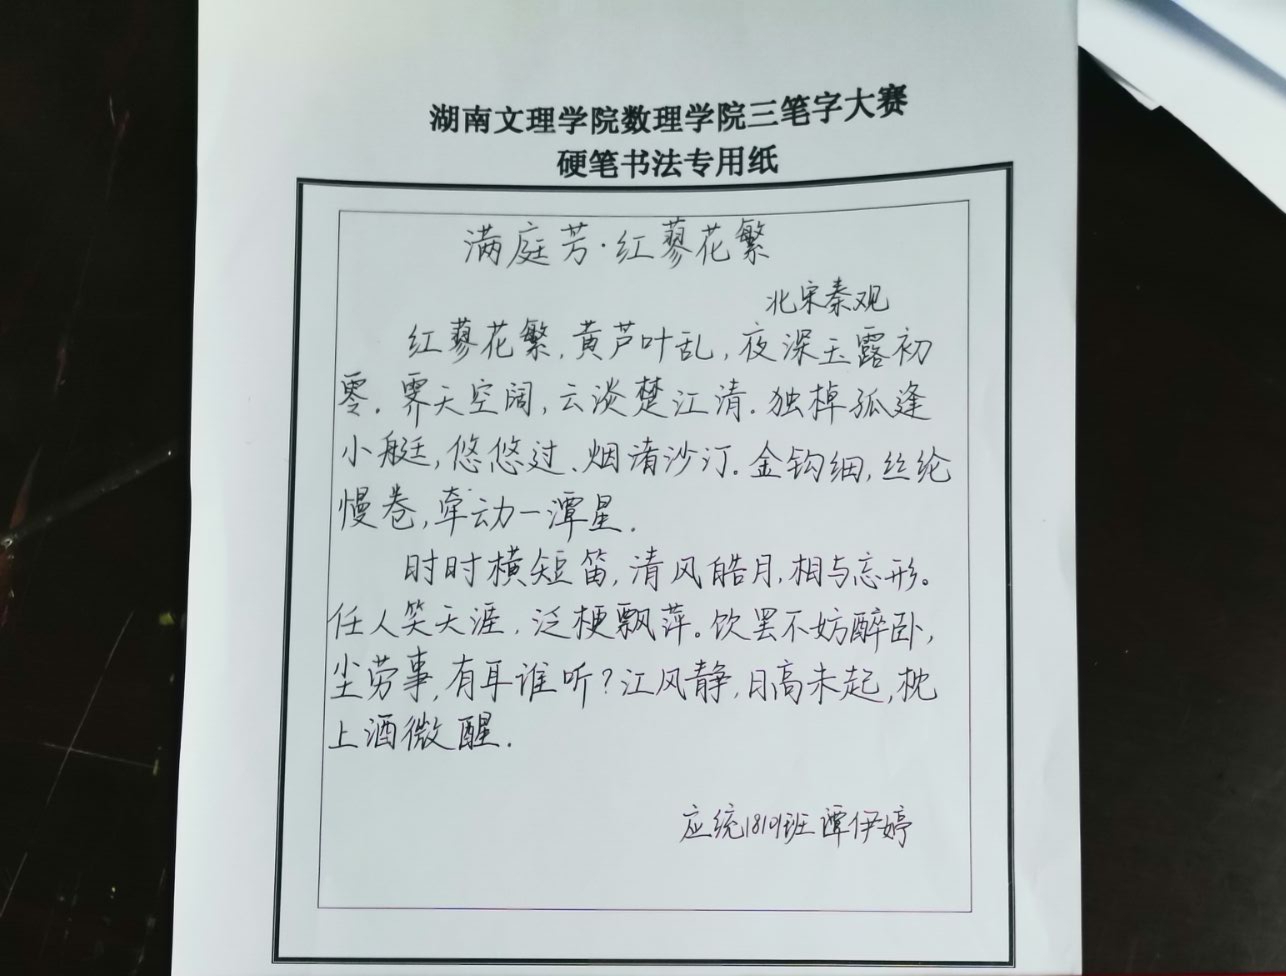 湖南文理学院数理学院三笔字大赛
硬笔书法专用纸
满庭芳·红蓼花繁
北宋秦观
红蓼花繁,黄芦叶乱,夜深玉露初
零.霁天空阔,云淡楚江清.独棹孤逢
小艇,悠悠过、烟渚沙汀.金钩细,丝纶
慢卷,牵动一潭星.
时时横短笛,清风皓月,相与忘形。
任人笑天涯,泛梗飘萍。饮罢不妨醉卧,
尘劳事,有耳谁听?江风静,日高未起,枕
上酒微醒.
应统18101班 谭伊婷